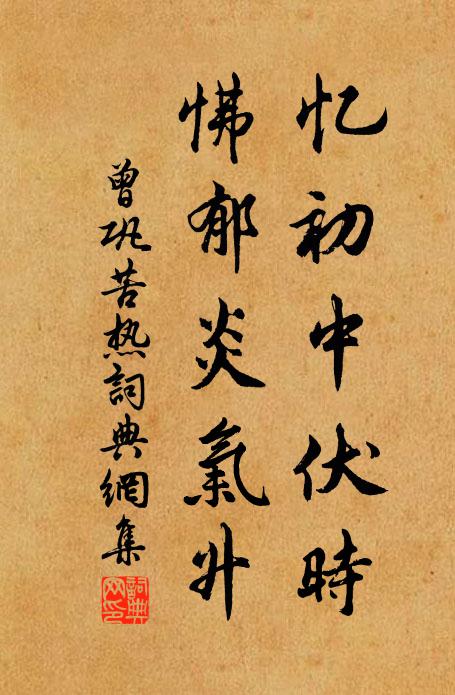 忆初中伏時
怫郁炎氣升
曾巩苦热詞典網集
詞典网印